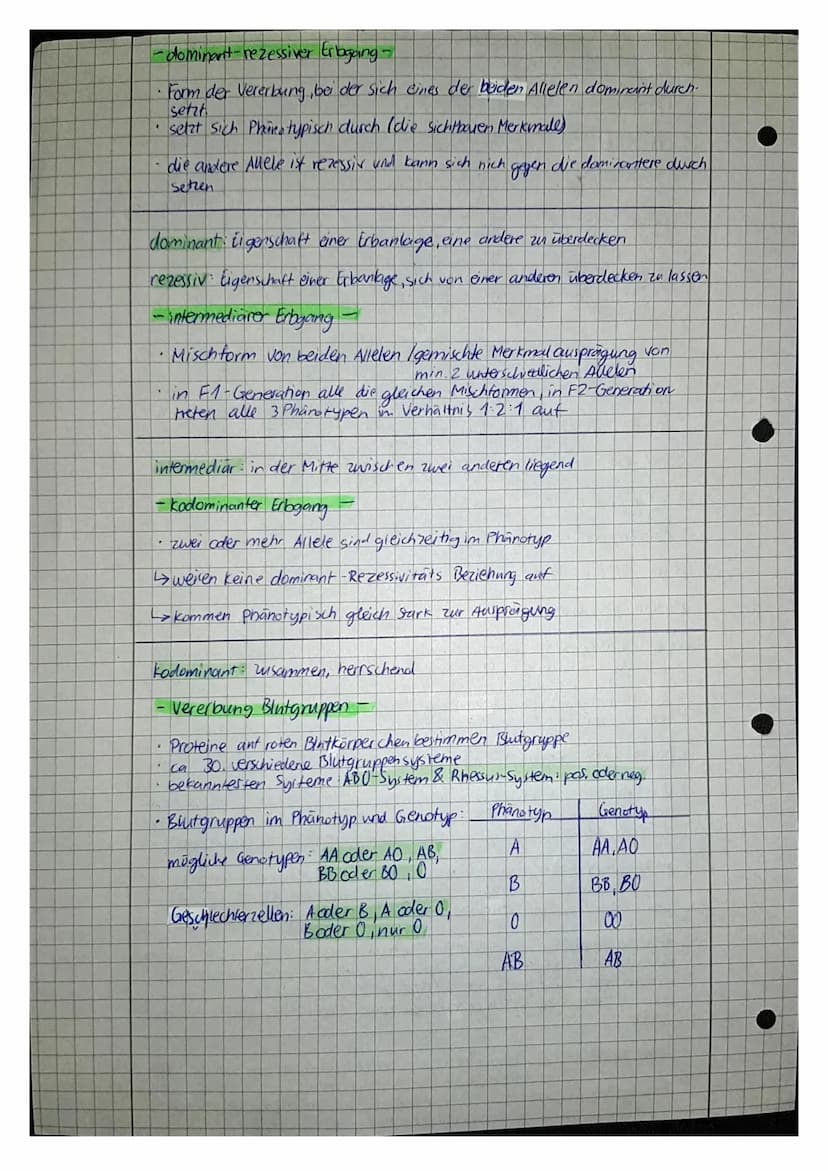 - dominant-rezessiver Erbgang -
· Form der Vererbung, bei der sich eines der beiden Allelen dominant durch-
setzt.
· setzt sich Phänotypisch durch (die sichtbaren Merkmale)
· die andere Allele ist rezessiv und kann sich nich gegen die dominantere durch
setzen
dominant: Eigenschaft einer Erbanlage, eine andere zu überdecken
rezessiv: Eigenschaft einer Erbanlage, sich von einer anderen überdecken zu lassen
- intermediärer Erbgang -
· Mischform von beiden Allelen /gemischte Merkmalausprägung von
min. 2 unterschiedlichen Allelen
· in F1-Generation alle die gleichen Mischformen, in F2-Generation
treten alle 3 Phänotypen in Verhältnis 1:2:1 auf
intermediär: in der Mitte zwischen zwei anderen liegend
- Kodominanter Erbgang -
· zwei oder mehr Allele sind gleichzeitig im Phänotyp
↳ weisen keine dominant-Rezessivitäts Beziehung auf
↳ kommen Phänotypisch gleich stark zur Ausprägung
kodominant: zusammen, herrschend
- Vererbung Blutgruppen -
· Proteine auf roten Blutkörperchen bestimmen Blutgruppe
· ca 30. verschiedene Blutgruppensysteme
· bekanntesten Systeme: ABO-System & Rhessus-System: pos. oder neg.
· Blutgruppen im Phänotyp und Genotyp: Phänotyp Genotyp
mögliche Genotypen: AA oder AO, AB, A AA, AO
BB oder BO, O
B BB, BO
Geschlechterzellen: A oder B, A oder O, O OO
B oder O, nur O
AB AB